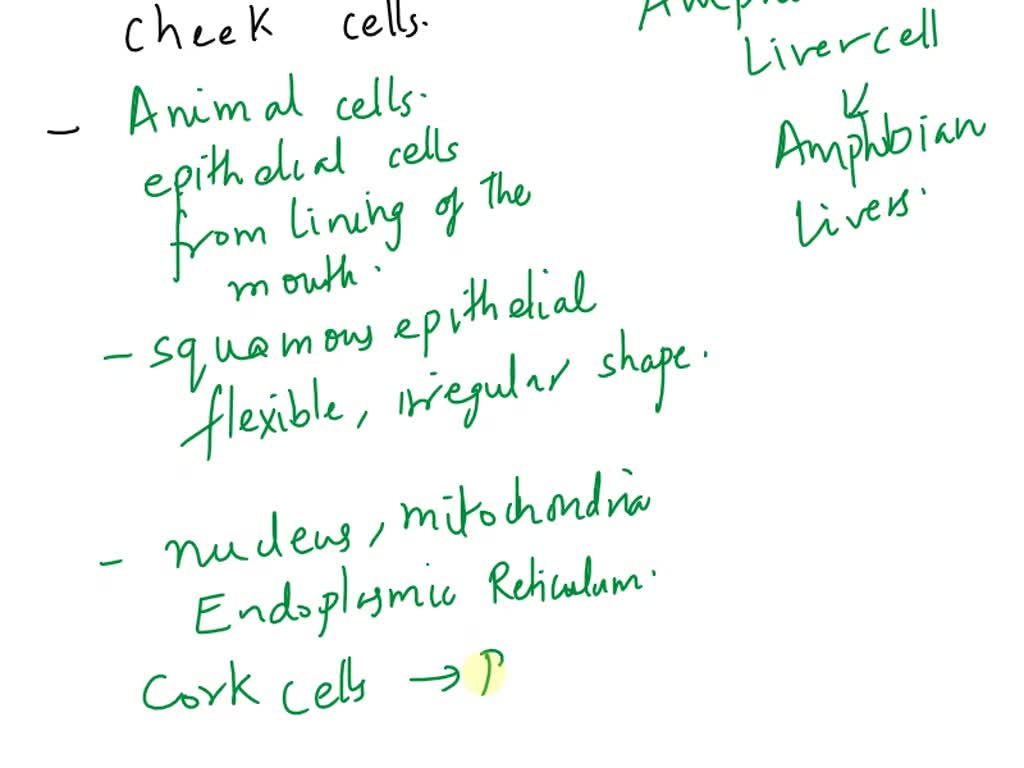 Cheek cells.
- Animal cells.
epithelial cells
from lining of the
mouth.
- squamous epithelial
flexible, irregular shape.
- nucleus, mitochondria
Endoplasmic Reticulum.
Cork cells →
Liver cell
↓
Amphibian
Livers.